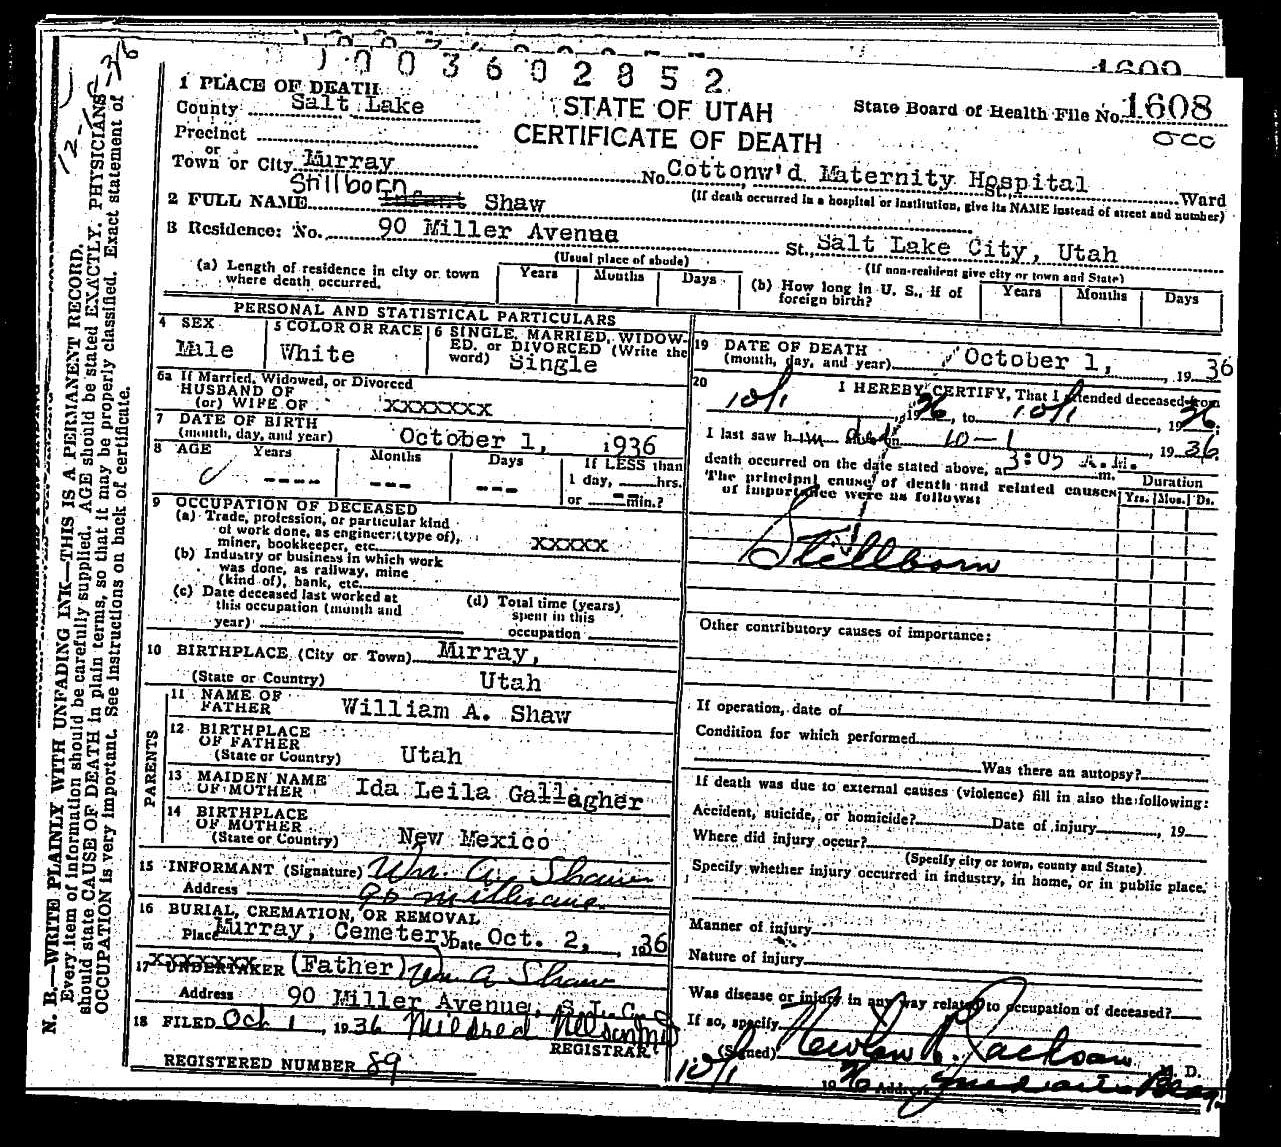 1609
1003602852
1 PLACE OF DEATH
County Salt Lake
STATE OF UTAH
CERTIFICATE OF DEATH
State Board of Health File No. 1608
Precinct
or
Town or City Murray No. Cottonw'd Maternity Hospital St., Ward
(If death occurred in a hospital or institution, give its NAME instead of street and number)
Stillborn
2 FULL NAME Infant Shaw
3 Residence: No. 90 Miller Avenue St. Salt Lake City, Utah
(Usual place of abode) (If non-resident give city or town and State)
(a) Length of residence in city or town where death occurred. Years Months Days
(b) How long in U. S., if of foreign birth? Years Months Days
PERSONAL AND STATISTICAL PARTICULARS
4 SEX Male
5 COLOR OR RACE White
6 SINGLE, MARRIED, WIDOW-
ED, or DIVORCED (Write the
word) Single
6a If Married, Widowed, or Divorced
HUSBAND OF
(or) WIFE OF XXXXXXX
7 DATE OF BIRTH
(month, day, and year) October 1, 1936
8 AGE Years Months Days If LESS than
1 day, hrs.
or min.?
9 OCCUPATION OF DECEASED
(a) Trade, profession, or particular kind
of work done, as engineer (type of),
miner, bookkeeper, etc. XXXXX
(b) Industry or business in which work
was done, as railway, mine
(kind of), bank, etc.
(c) Date deceased last worked at
this occupation (month and
year)
(d) Total time (years)
spent in this
occupation
10 BIRTHPLACE (City or Town) Murray,
(State or Country) Utah
PARENTS
11 NAME OF
FATHER William A. Shaw
12 BIRTHPLACE
OF FATHER
(State or Country) Utah
13 MAIDEN NAME
OF MOTHER Ida Leila Gallagher
14 BIRTHPLACE
OF MOTHER
(State or Country) New Mexico
15 INFORMANT (Signature) Wm. A. Shaw
Address 90 Miller ave.
16 BURIAL, CREMATION, OR REMOVAL
Place Murray, Cemetery Date Oct. 2, 1936
17 UNDERTAKER (Father) Wm A Shaw
XXXXXXX
Address 90 Miller Avenue, S.L. City
18 FILED Oct 1, 1936 Mildred Nelson
REGISTRAR
REGISTERED NUMBER 89
19 DATE OF DEATH
(month, day, and year) October 1, 1936
20 I HEREBY CERTIFY, That I attended deceased from
10/1, 1936, to 10/1, 1936.
I last saw him on 10-1, 1936.
death occurred on the date stated above, at 3:05 A.M. m.
The principal cause of death and related causes
of importance were as follows:
Duration
Yrs. Mos. Ds.
Stillborn
Other contributory causes of importance:
If operation, date of
Condition for which performed
Was there an autopsy?
If death was due to external causes (violence) fill in also the following:
Accident, suicide, or homicide? Date of injury, 19
Where did injury occur?
(Specify city or town, county and State)
Specify whether injury occurred in industry, in home, or in public place.
Manner of injury
Nature of injury
Was disease or injury in any way related to occupation of deceased?
If so, specify
(Signed) Jackson M. D.
10/1 1936 Address
N. B.—WRITE PLAINLY WITH UNFADING INK—THIS IS A PERMANENT RECORD.
Every item of information should be carefully supplied. AGE should be stated EXACTLY. PHYSICIANS
should state CAUSE OF DEATH in plain terms, so that it may be properly classified. Exact statement of
OCCUPATION is very important. See instructions on back of certificate.